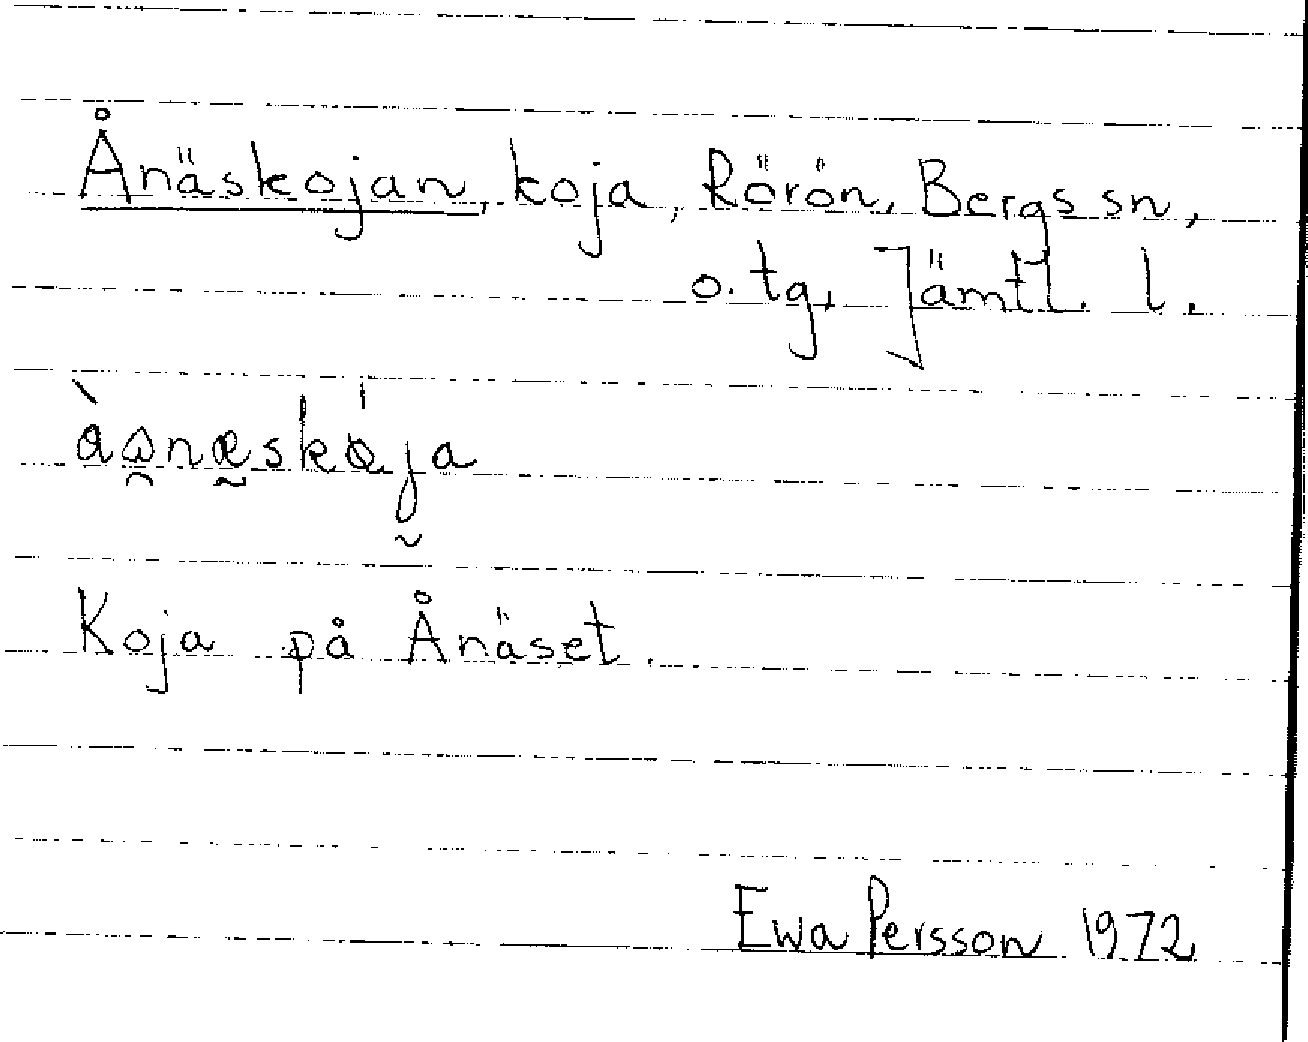 Ånäskojan, koja, Rörön, Bergs sn,
o. tg, Jämtl. l.
Koja på Ånäset.
Ewa Persson 1972